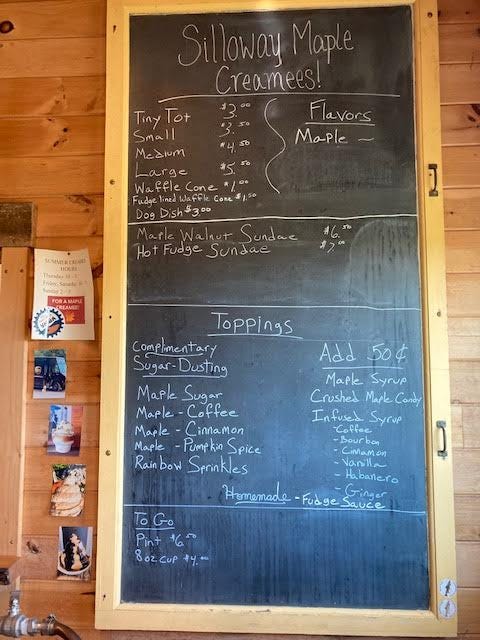 Silloway Maple
Creamees!
Tiny Tot $3.00
Small $3.50
Medium $4.50
Large $5.50
Waffle Cone $1.00
Fudge lined Waffle Cone $1.50
Dog Dish $3.00
Flavors
Maple ~
Maple Walnut Sundae $6.50
Hot Fudge Sundae $7.00
Toppings
Complimentary
Sugar-Dusting
Maple Sugar
Maple - Coffee
Maple - Cinnamon
Maple - Pumpkin Spice
Rainbow Sprinkles
Add .50¢
Maple Syrup
Crushed Maple Candy
Infused Syrup
- Coffee
- Bourbon
- Cinnamon
- Vanilla
- Habanero
- Ginger
Homemade - Fudge Sauce
To Go
Pint $6.50
8oz. cup $4.00
SUMMER CREAMEE
HOURS
FOR A MAPLE
CREAMEE!